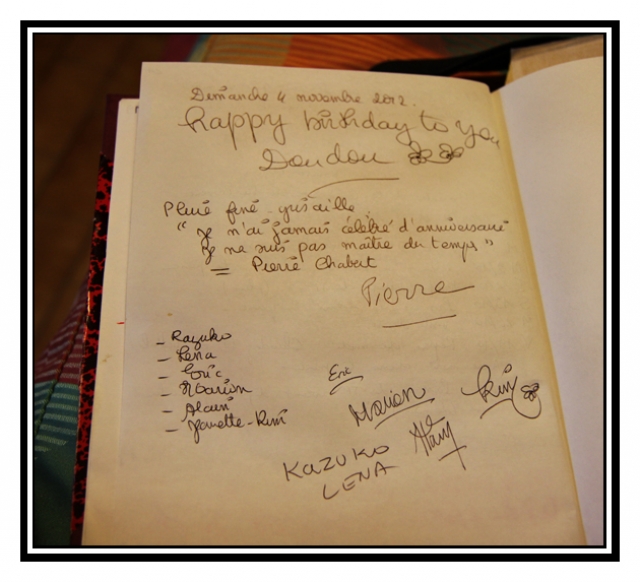 Dimanche 4 novembre 2012.
happy birthday to you
Doudou
Pluie fine grisaille
" Je n'ai jamais célébré d'anniversaire
Je ne suis pas maître du temps "
= Pierre Chabert
Pierre
- Kazuko
- Lena
- Eric
- Marion
- Alain
- Janette-Rini
Eric
Marion
Rini
Alain
KAZUKO
LENA